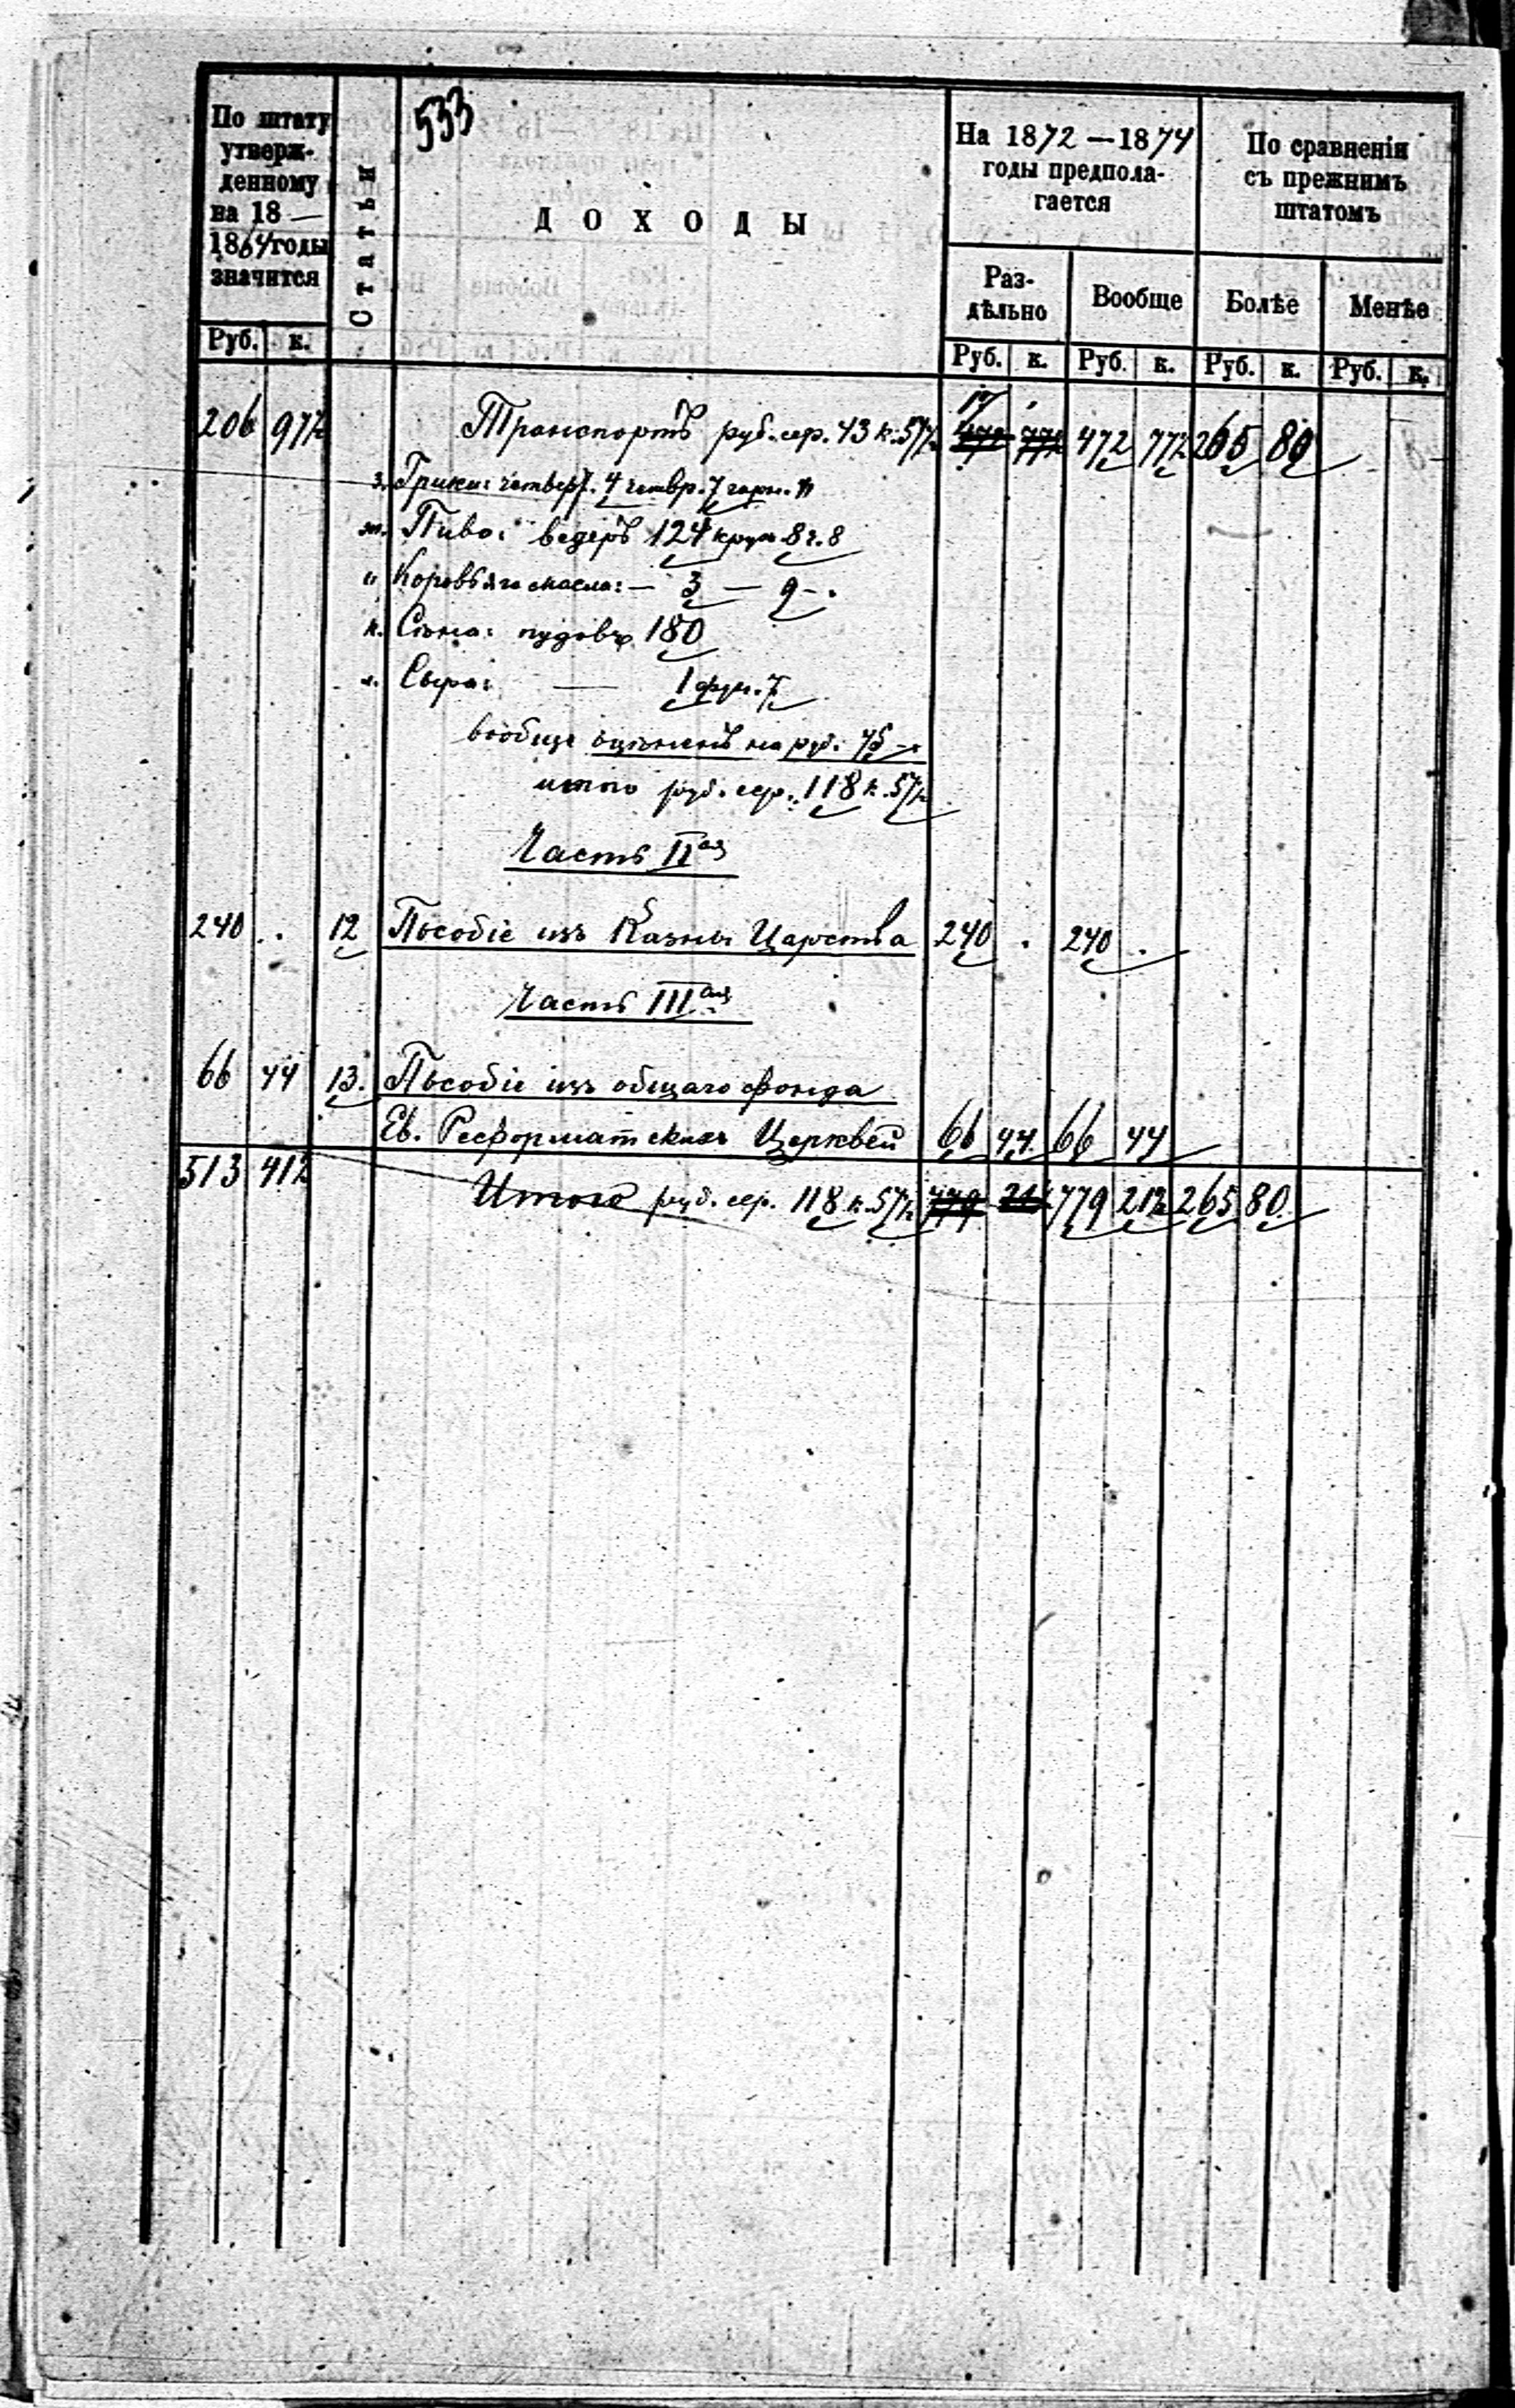 533
По штату утверж-
денному
на 18 —
1864 годы
значится
Статьи
ДОХОДЫ
На 1872 — 1874
годы предпола-
гается
По сравненію
съ прежнимъ
штатомъ
Раз-
дѣльно
Вообще
Болѣе
Менѣе
Руб. к.
Руб. к. Руб. к. Руб. к. Руб. к.
206 97½ Транспортъ руб. сер. 43 к. 57½ 472 77½ 265 80
Грики: четверт. 4 четвр. 7 гарн.
Пиво: ведеръ 124 круж. 8 ч. 8
Коровьяго масла: — 3 — 9 -.
к. Сѣна: пудовъ 180
Сыра: — 1 фун. 7
вообще оцѣненъ на руб. 75 -
итого руб. сер. 118 к. 57½
Часть II ая
240 . . 12 Пособіе изъ Казны Царства 240 . 240 .
Часть III ая
66 44 13. Пособіе изъ общаго фонда
Ев. Реформатскихъ Церквей 66 44 66 44
513 41½ Итого руб. сер. 118 к. 57½ 779 21½ 265 80